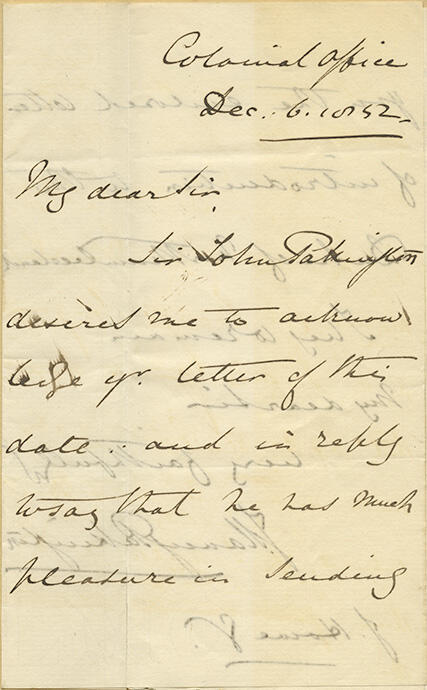 Colonial Office
Dec. 6. 1852.
My dear Sir,
Sir John Pakington
desires me to acknow
ledge yr. letter of this
date .. and in reply
to say that he has much
pleasure in sending